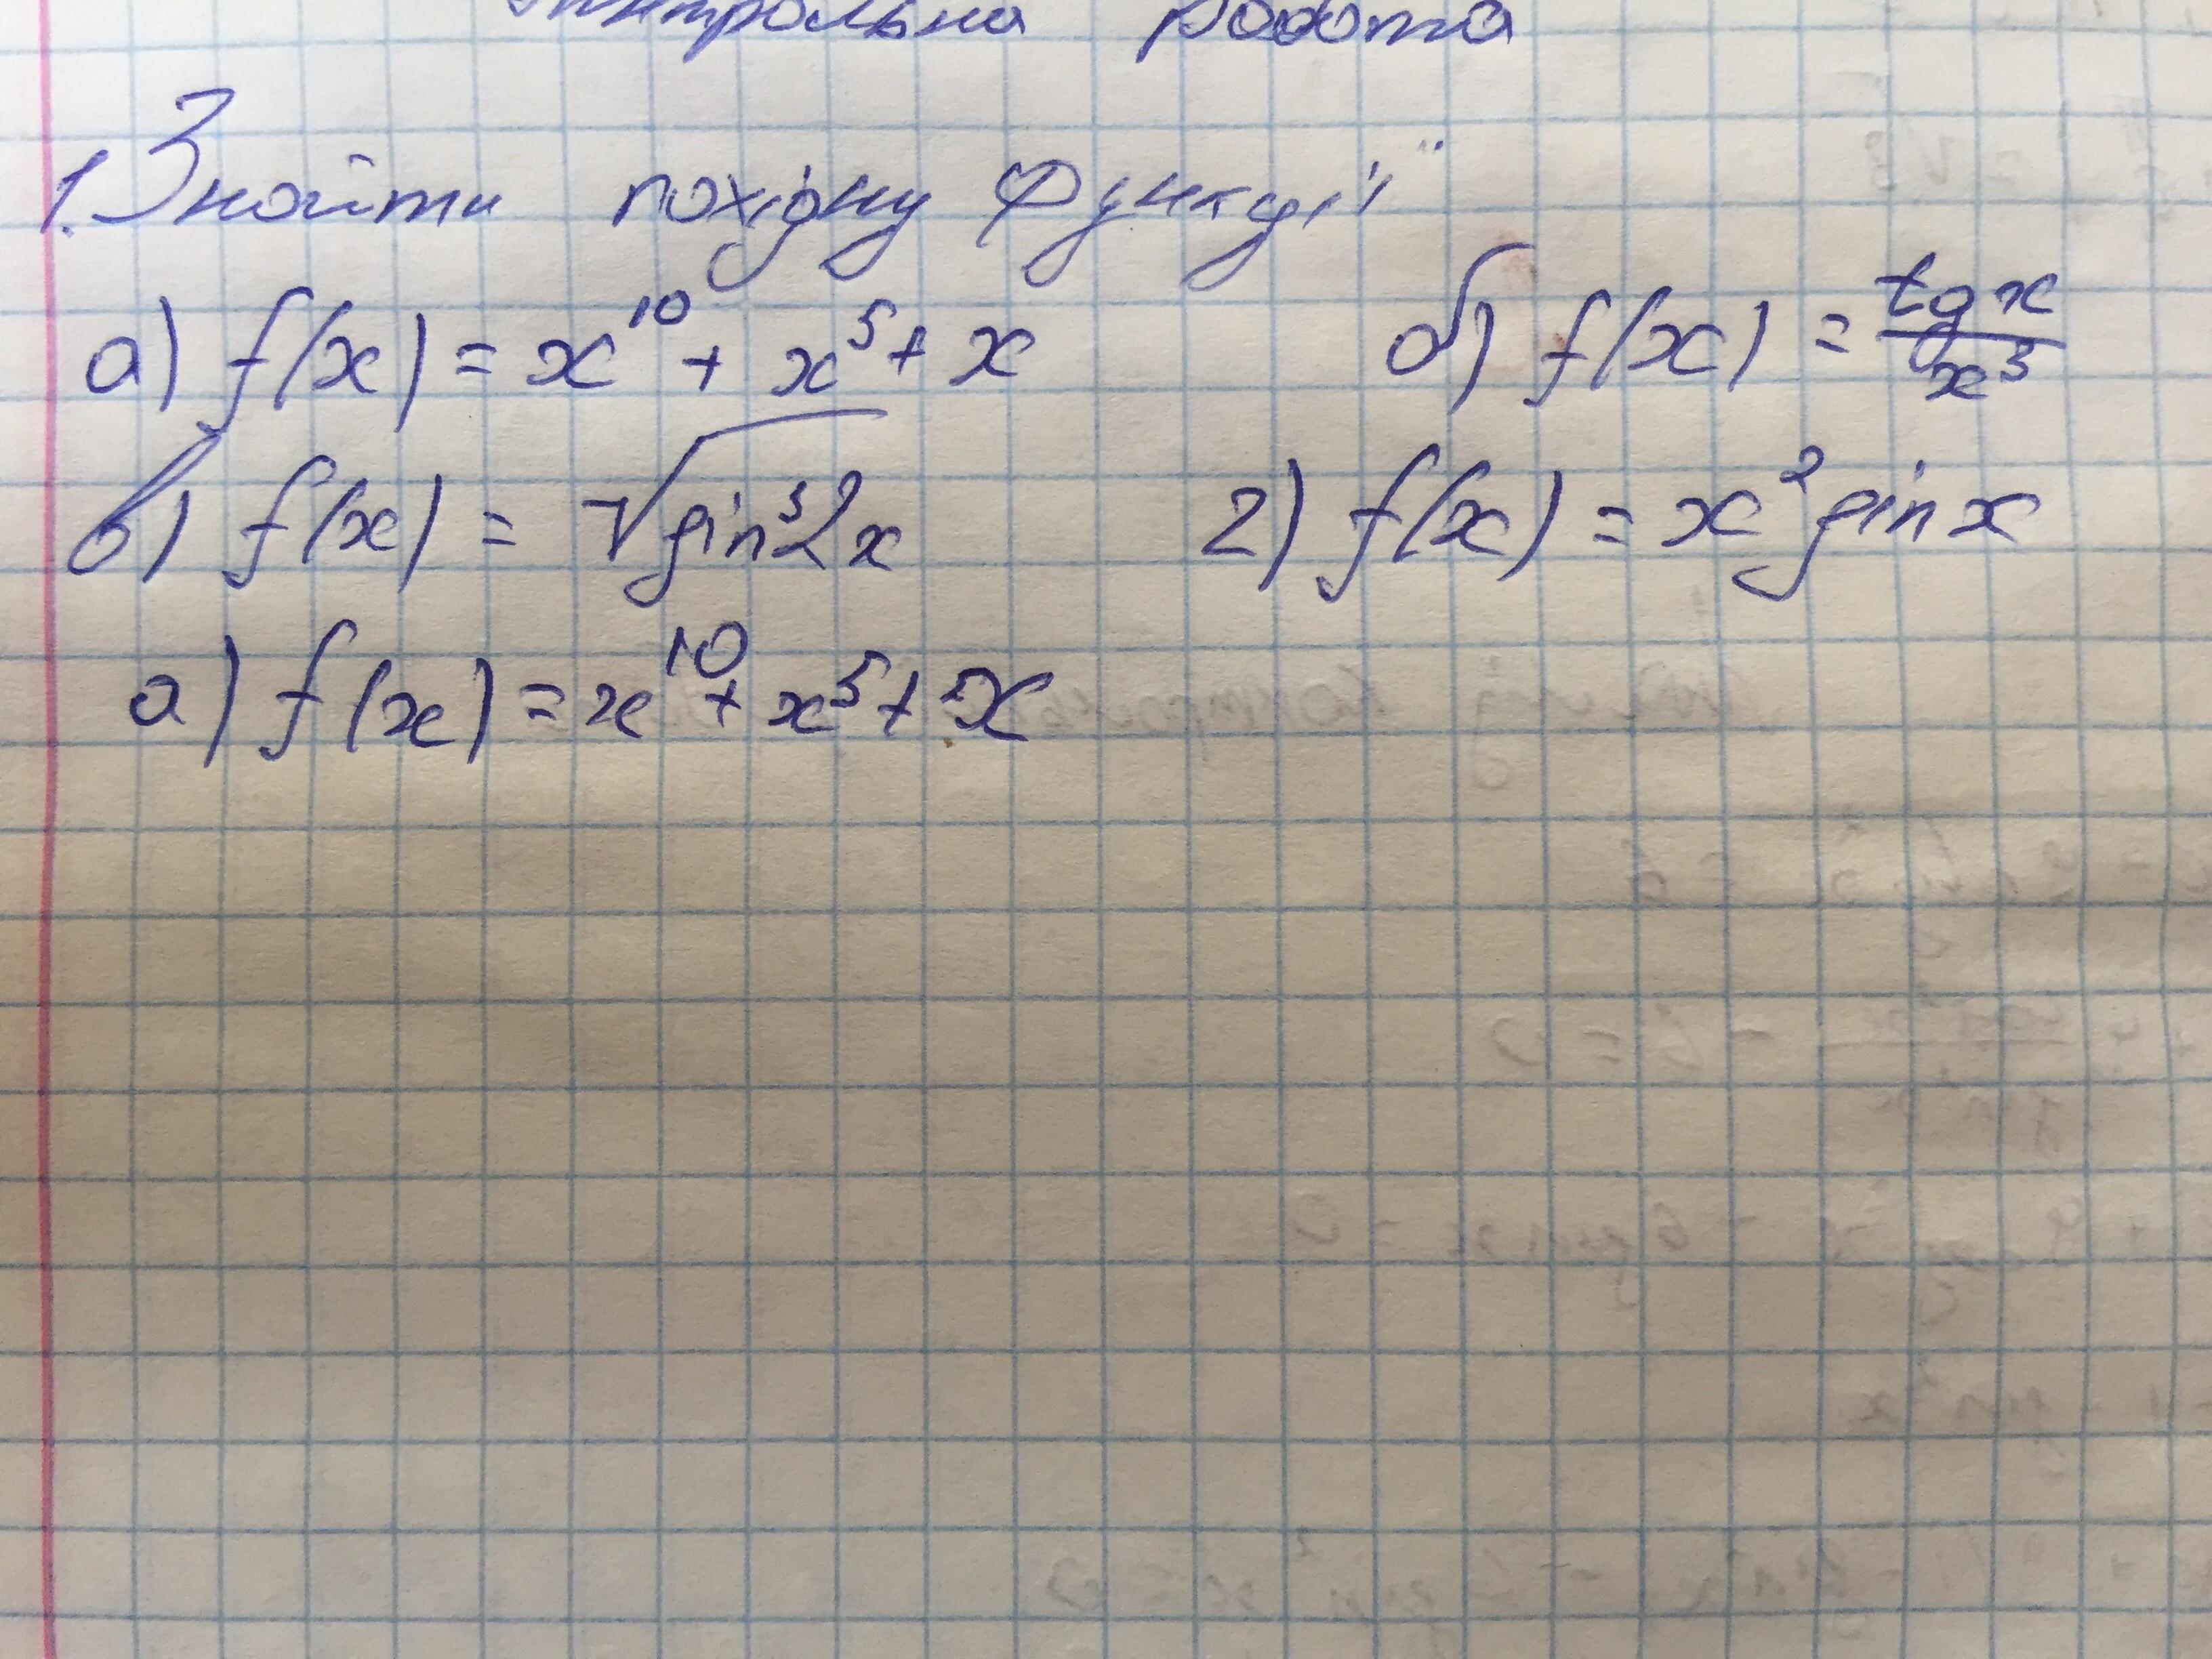 робота
1. Знайти похідну функції
а) f(x) = x¹⁰ + x⁵ + x б) f(x) = tg x / x³
в) f(x) = √sin³2x г) f(x) = x² sin x
а) f(x) = x¹⁰ + x⁵ + x